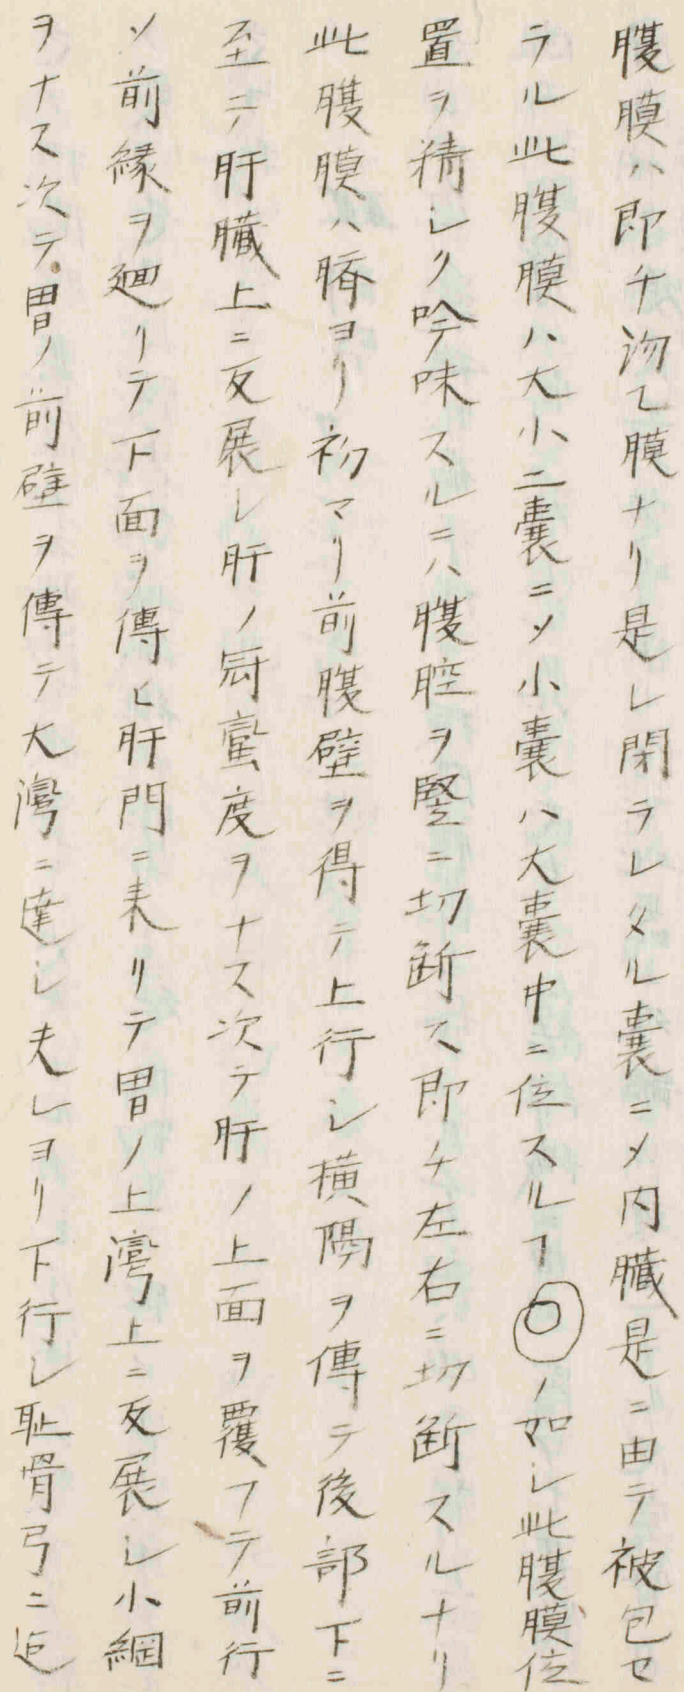 腹膜ハ即チ沕乙膜ナリ是レ閉ラレタル囊ニメ内臓是ニ由テ被包セ
ラル此腹膜ハ大小二囊ニメ小囊ハ大囊中ニ位スルヿ◎ノ如シ此腹膜位
置ヲ精シク吟味スルニハ腹腔ヲ竪ニ切断ス即チ左右ニ切断スルナリ
此腹膜ハ臍ヨリ初マリ前腹壁ヲ得テ上行シ横隔ヲ傳テ後部下ニ
至テ肝臓上ニ反展シ肝ノ冠蛮度ヲナス次テ肝ノ上面ヲ覆フテ前行
ソ前縁ヲ廻リテ下面ヲ傳ヒ肝門ニ来リテ胃ノ上彎上ニ反展シ小網
ヲナス次テ胃ノ前壁ヲ傳テ大彎ニ達シ夫レヨリ下行シ恥骨弓ニ近